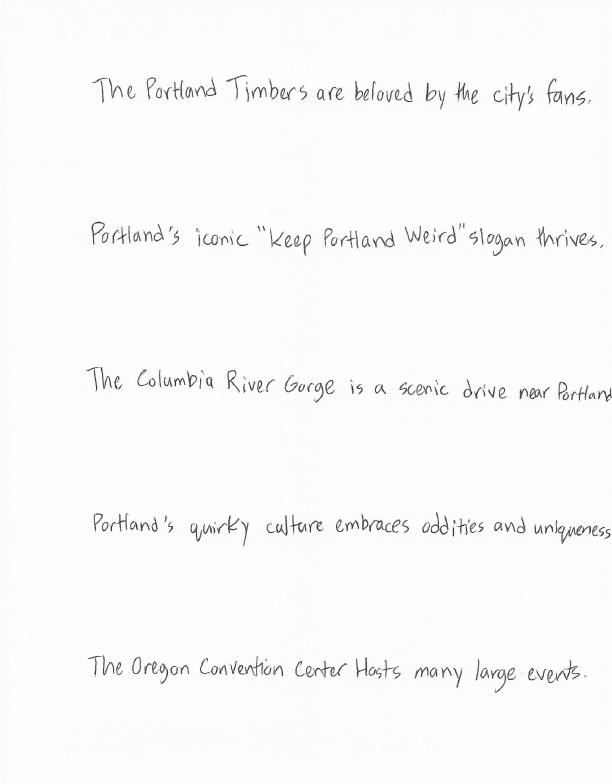 The Portland Timbers are beloved by the city's fans.
Portland's iconic "Keep Portland Weird" slogan thrives.
The Columbia River Gorge is a scenic drive near Portland
Portland's quirky culture embraces oddities and uniqueness
The Oregon Convention Center Hosts many large events.